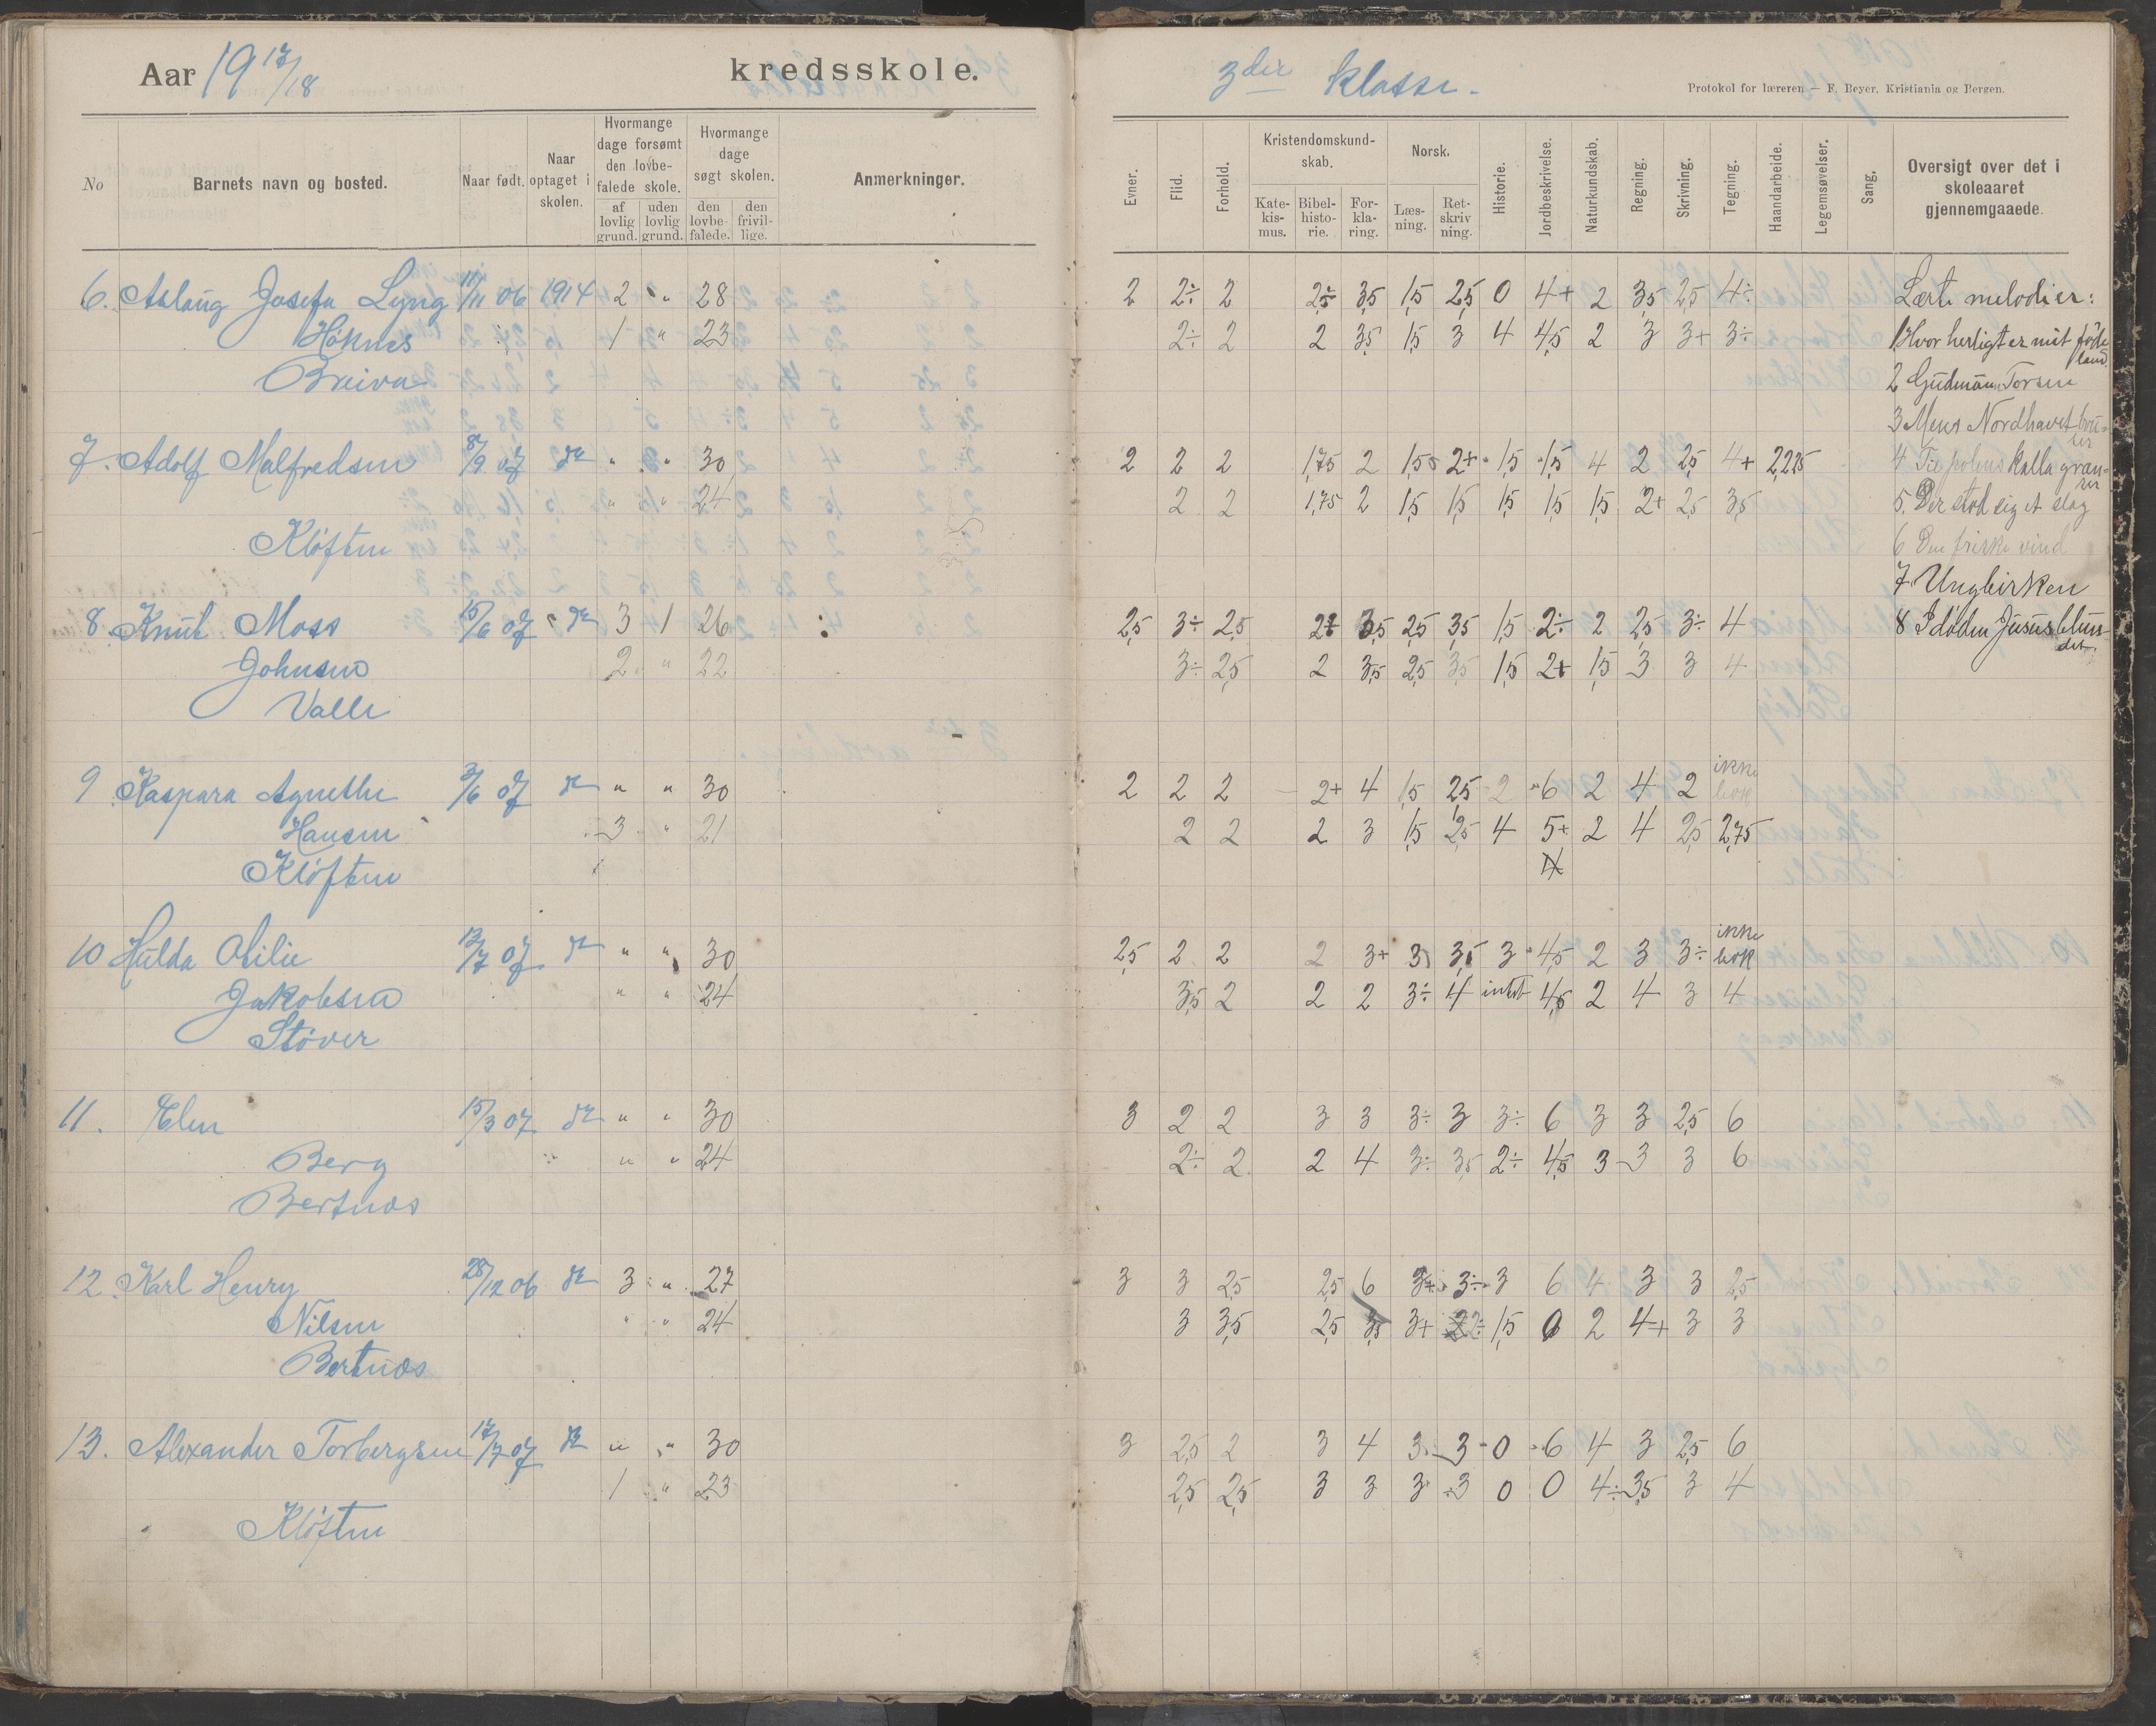 Aar 19 17/18 kredsskole.
No
Barnets navn og bosted.
Naar født.
Naar optaget i skolen.
Hvormange dage forsømt den lovbefalede skole.
af lovlig grund.
uden lovlig grund.
Hvormange dage søgt skolen.
den lovbefalede.
den frivillige.
Anmerkninger.
6. Aslaug Josefa Lyng 11/11 06 1914 2 " 28
Høknes 1 " 23
Breiva
7. Adolf Malfredsen 8/9 07 " " 30
" " 24
Kløften
8. Knut Moss 15/6 07 3 1 26
Johnsen 2 " 22
Valle
9 Kaspara Agnethe 3/6 07 " " 30
Hansen 3 " 21
Kløften
10 Hulda Otilie 13/7 07 " " 30
Jakobsen " " 24
Støver
11. Elen 15/3 07 " " 30
Berg " " 24
Bertnæs
12. Karl Henry 28/12 06 3 " 27
Nilsen " " 24
Bertnæs
13. Alexander Torbergsen 17/7 07 " " 30
1 " 23
Kløften
3die klasse.
Protokol for læreren — F. Beyer, Kristiania og Bergen.
Evner.
Flid.
Forhold.
Kristendomskundskab.
Katekismus.
Bibelhistorie.
Forklaring.
Norsk.
Læsning.
Retskrivning.
Historie.
Jordbeskrivelse.
Naturkundskab.
Regning.
Skrivning.
Tegning.
Haandarbeide.
Legemsøvelser.
Sang.
Oversigt over det i skoleaaret gjennemgaaede.
2 2÷ 2 2,5 3,5 1,5 2,5 0 4+ 2 3,5 2,5 4÷
2÷ 2 2 3,5 1,5 3 4 4,5 2 3 3+ 3÷
2 2 2 1,75 2 1,5 2+ 1,5 1,5 4 2 2,5 4+ 2,225
2 2 1,75 2 1,5 1,5 1,5 1,5 1,5 2+ 2,5 3,5
2,5 3÷ 2,5 3,5 2,5 3,5 1,5 2÷ 2 2,5 3÷ 4
3÷ 2,5 2 3,5 2,5 3,5 1,5 2+ 1,5 3 3 4
2 2 2 2+ 4 1,5 2,5 2 6 2 4 2 ikke bok
2 2 2 3 1,5 2,5 4 5+ 2 4 2,5 2,75
2,5 2 2 2 3+ 3 3,5 3 4,5 2 3 3÷ ikke bok
3,5 2 2 2 3÷ 4 intet 4,5 2 4 3 4
3 2 2 3 3 3÷ 3 3÷ 6 3 3 2,5 6
2÷ 2 2 4 3÷ 3,5 2÷ 4,5 3 3 3 6
3 3 2,5 2,5 6 3+ 3÷ 3 6 4 3 3 2,5
3 3,5 2,5 3,5 3+ 2÷ 1,5 0 2 4+ 3 3
3 2,5 2 3 4 3 3 0 6 4 3 2,5 6
2,5 2,5 3 3 3 3 0 0 4÷ 3,5 3 4
Lærte melodier:
1 Hvor herligt er mit fødeland
2 Gudmunn Torsen
3 Mens Nordhavet bruser
4 Til polens kalla grænser
5. Der stod sig et slag
6 Den friske vind
7. Ungbirken
8 I døden Jesus blundet.